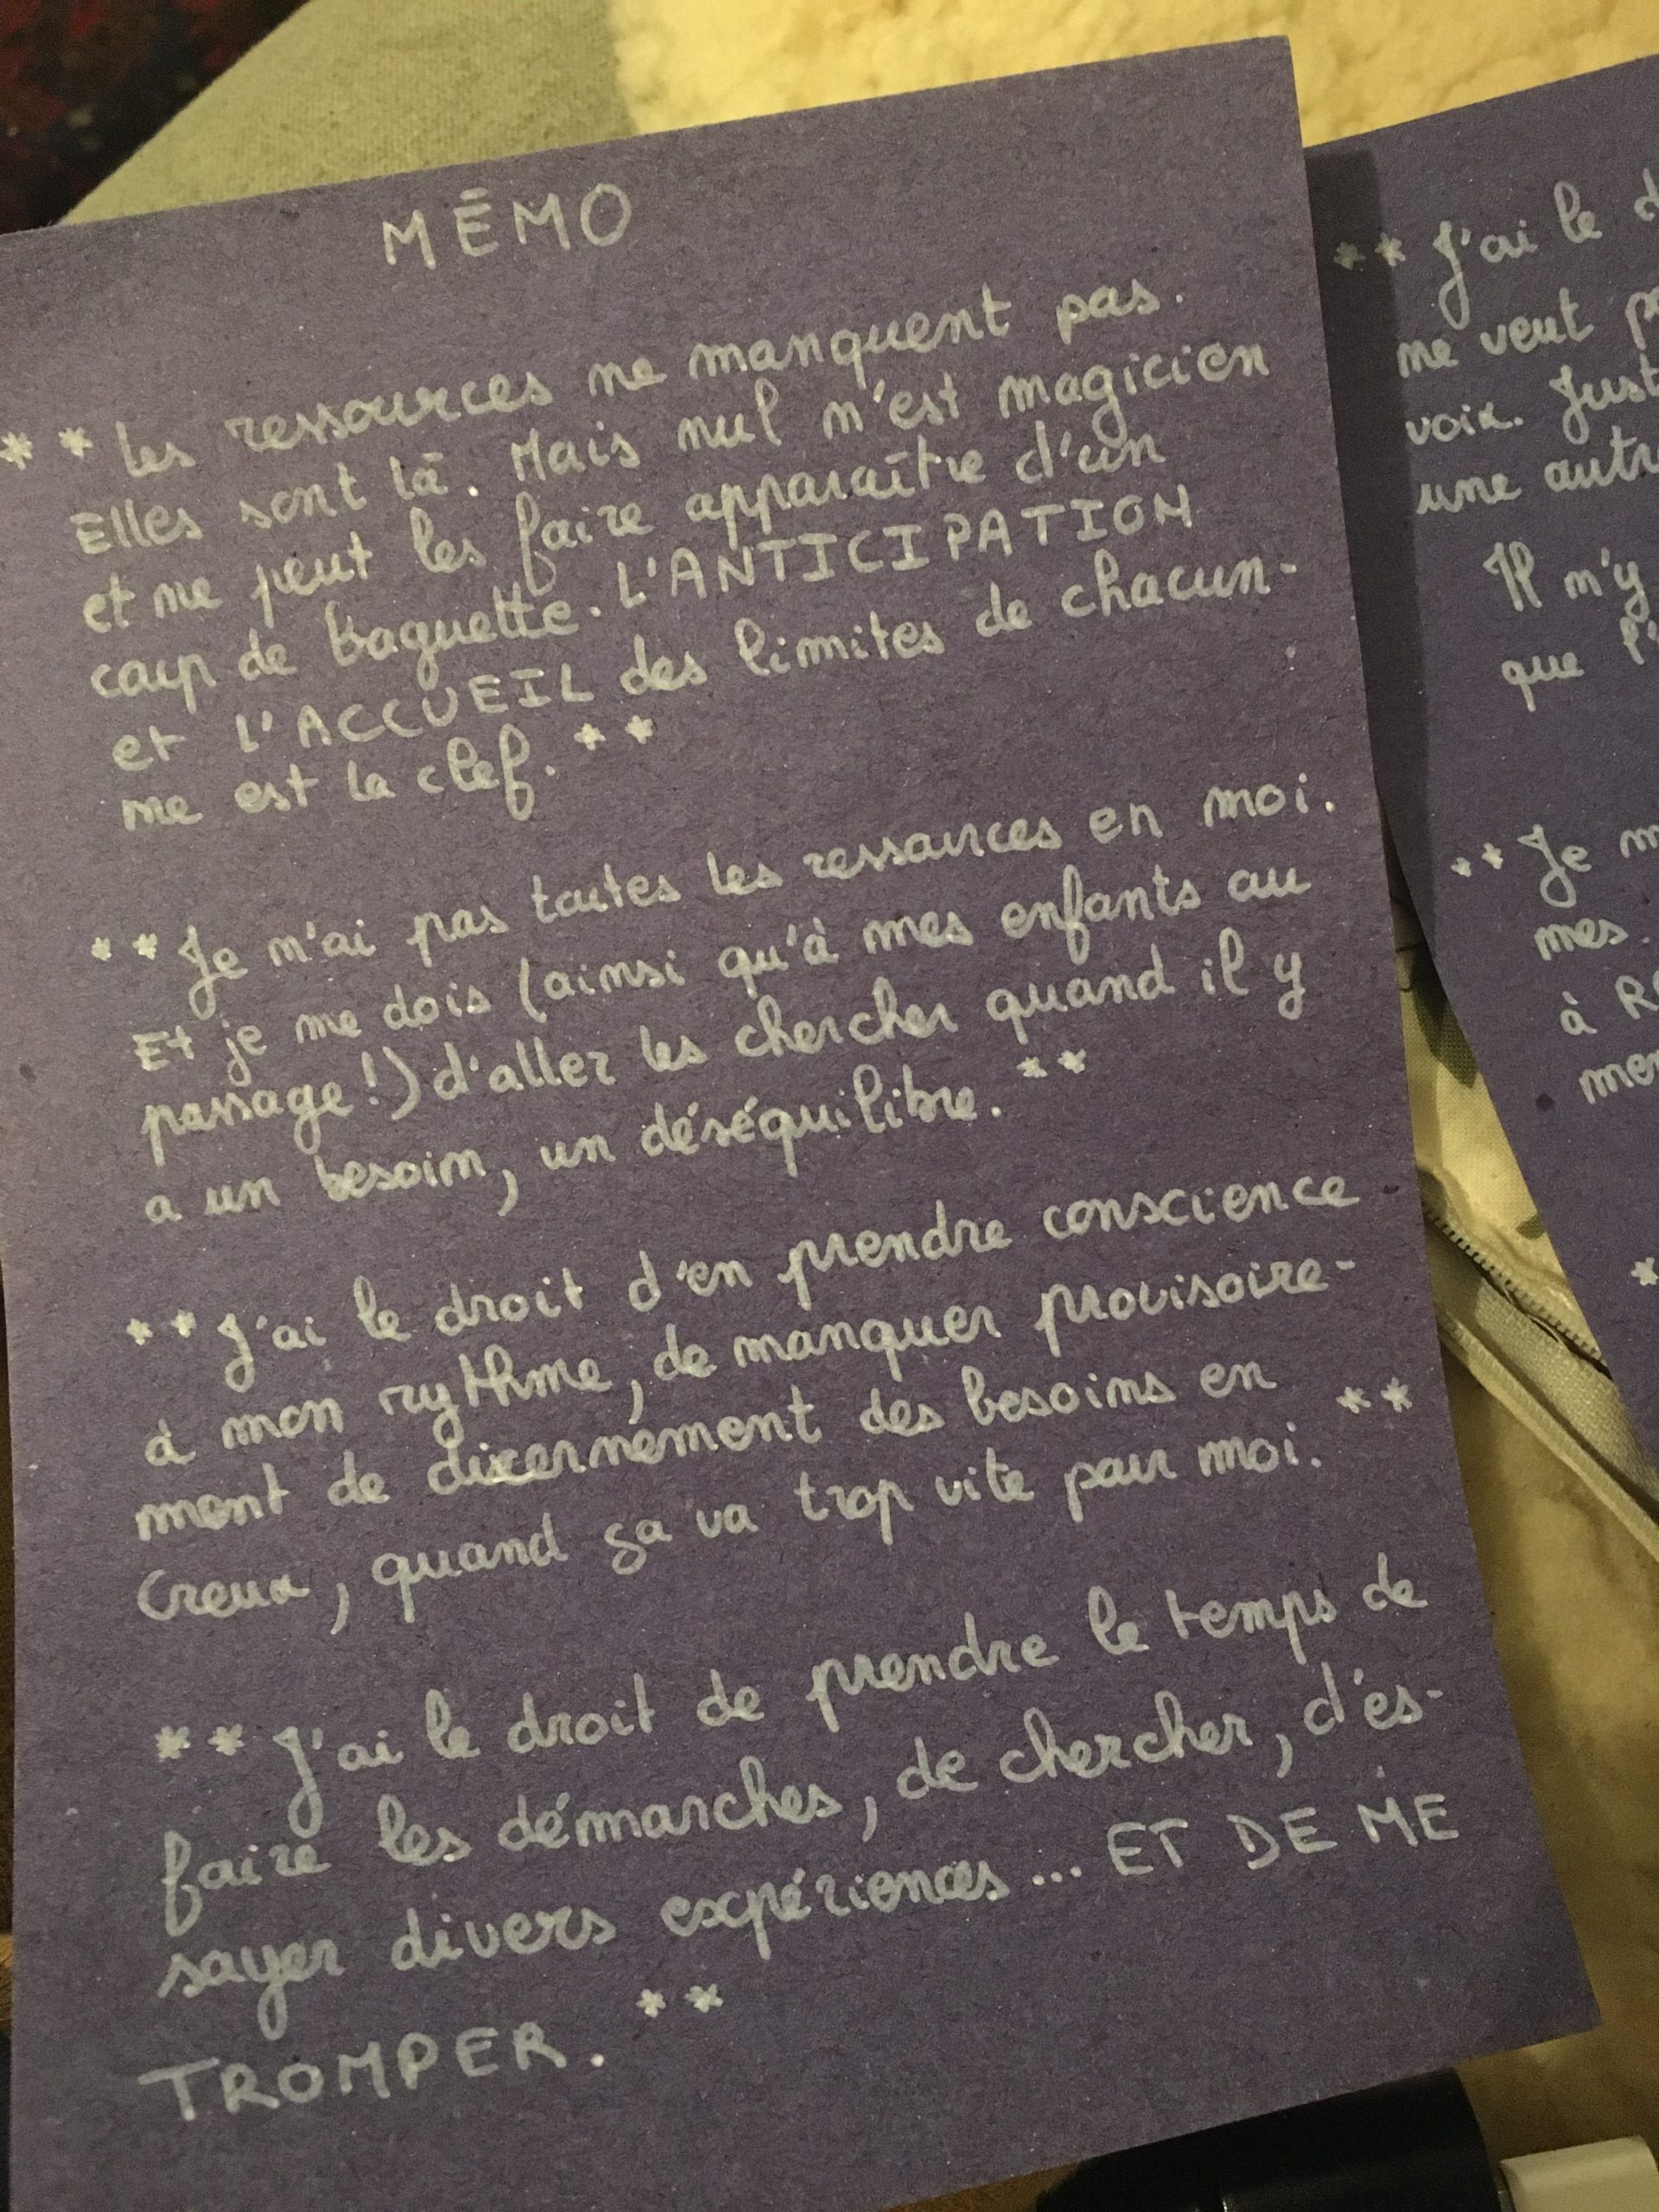 MÉMO
** Les ressources ne manquent pas.
Elles sont là. Mais nul n'est magicien
et ne peut les faire apparaître d'un
coup de baguette. L'ANTICIPATION
et L'ACCUEIL des limites de chacun-
ne est la clef. **
** Je n'ai pas toutes les ressources en moi.
Et je me dois (ainsi qu'à mes enfants au
passage!) d'aller les chercher quand il y
a un besoin, un déséquilibre. **
** J'ai le droit d'en prendre conscience
à mon rythme, de manquer provisoire-
ment de discernement des besoins en
creux, quand ça va trop vite pour moi. **
** J'ai le droit de prendre le temps de
faire les démarches, de chercher, d'es-
sayer divers expériences... ET DE ME
TROMPER. **
** J'ai le
ne veut
voix. Just
une autr
Il n'y
que l'
** Je m
mes
à
men
*